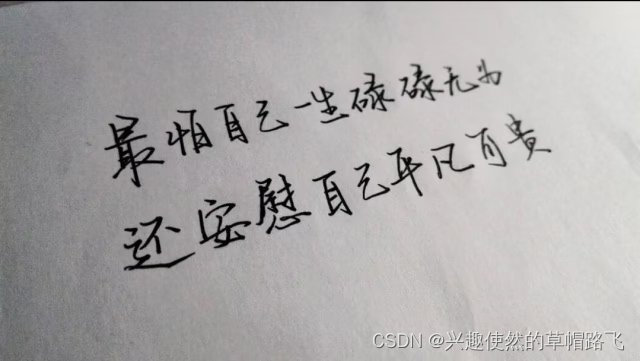 最怕自己一生碌碌无为
还安慰自己平凡可贵
CSDN @兴趣使然的草帽路飞